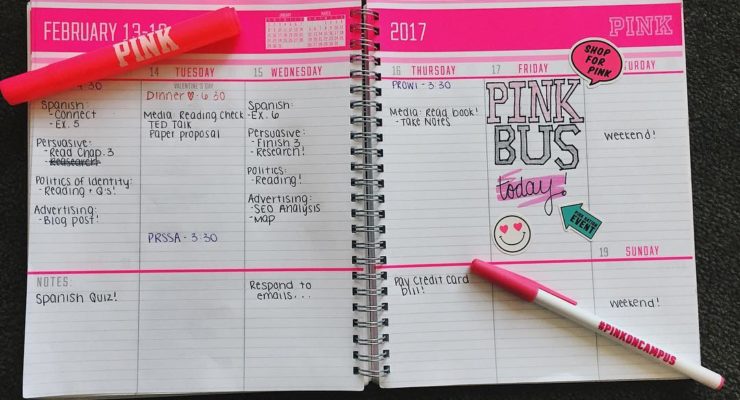 FEBRUARY 13-19
PINK
2017
PINK
14 TUESDAY
VALENTINE'S DAY
15 WEDNESDAY
16 THURSDAY
17 FRIDAY
SHOP
FOR
PINK
:30
Spanish:
- Connect
- Ex. 5
Persuasive:
- Read Chap. 3
- Reasearch!
Politics of Identity:
- Reading + Q's!
Advertising:
- Blog post!
Dinner ♡: 6:30
Media: Reading Check
TED Talk
Paper proposal
PRSSA - 3:30
Spanish:
- Ex. 6
Persuasive:
- Finish 3
- Research!
Politics:
- Reading!
Advertising:
- SEO Analysis
- Map
PROWL - 3:30
Media: Read book!
- Take Notes
PINK
BUS
today!
EVENT
Weekend!
19 SUNDAY
Weekend!
NOTES:
Spanish Quiz!
Respond to
emails...
Pay Credit Card
bill!
#PINKONCAMPUS